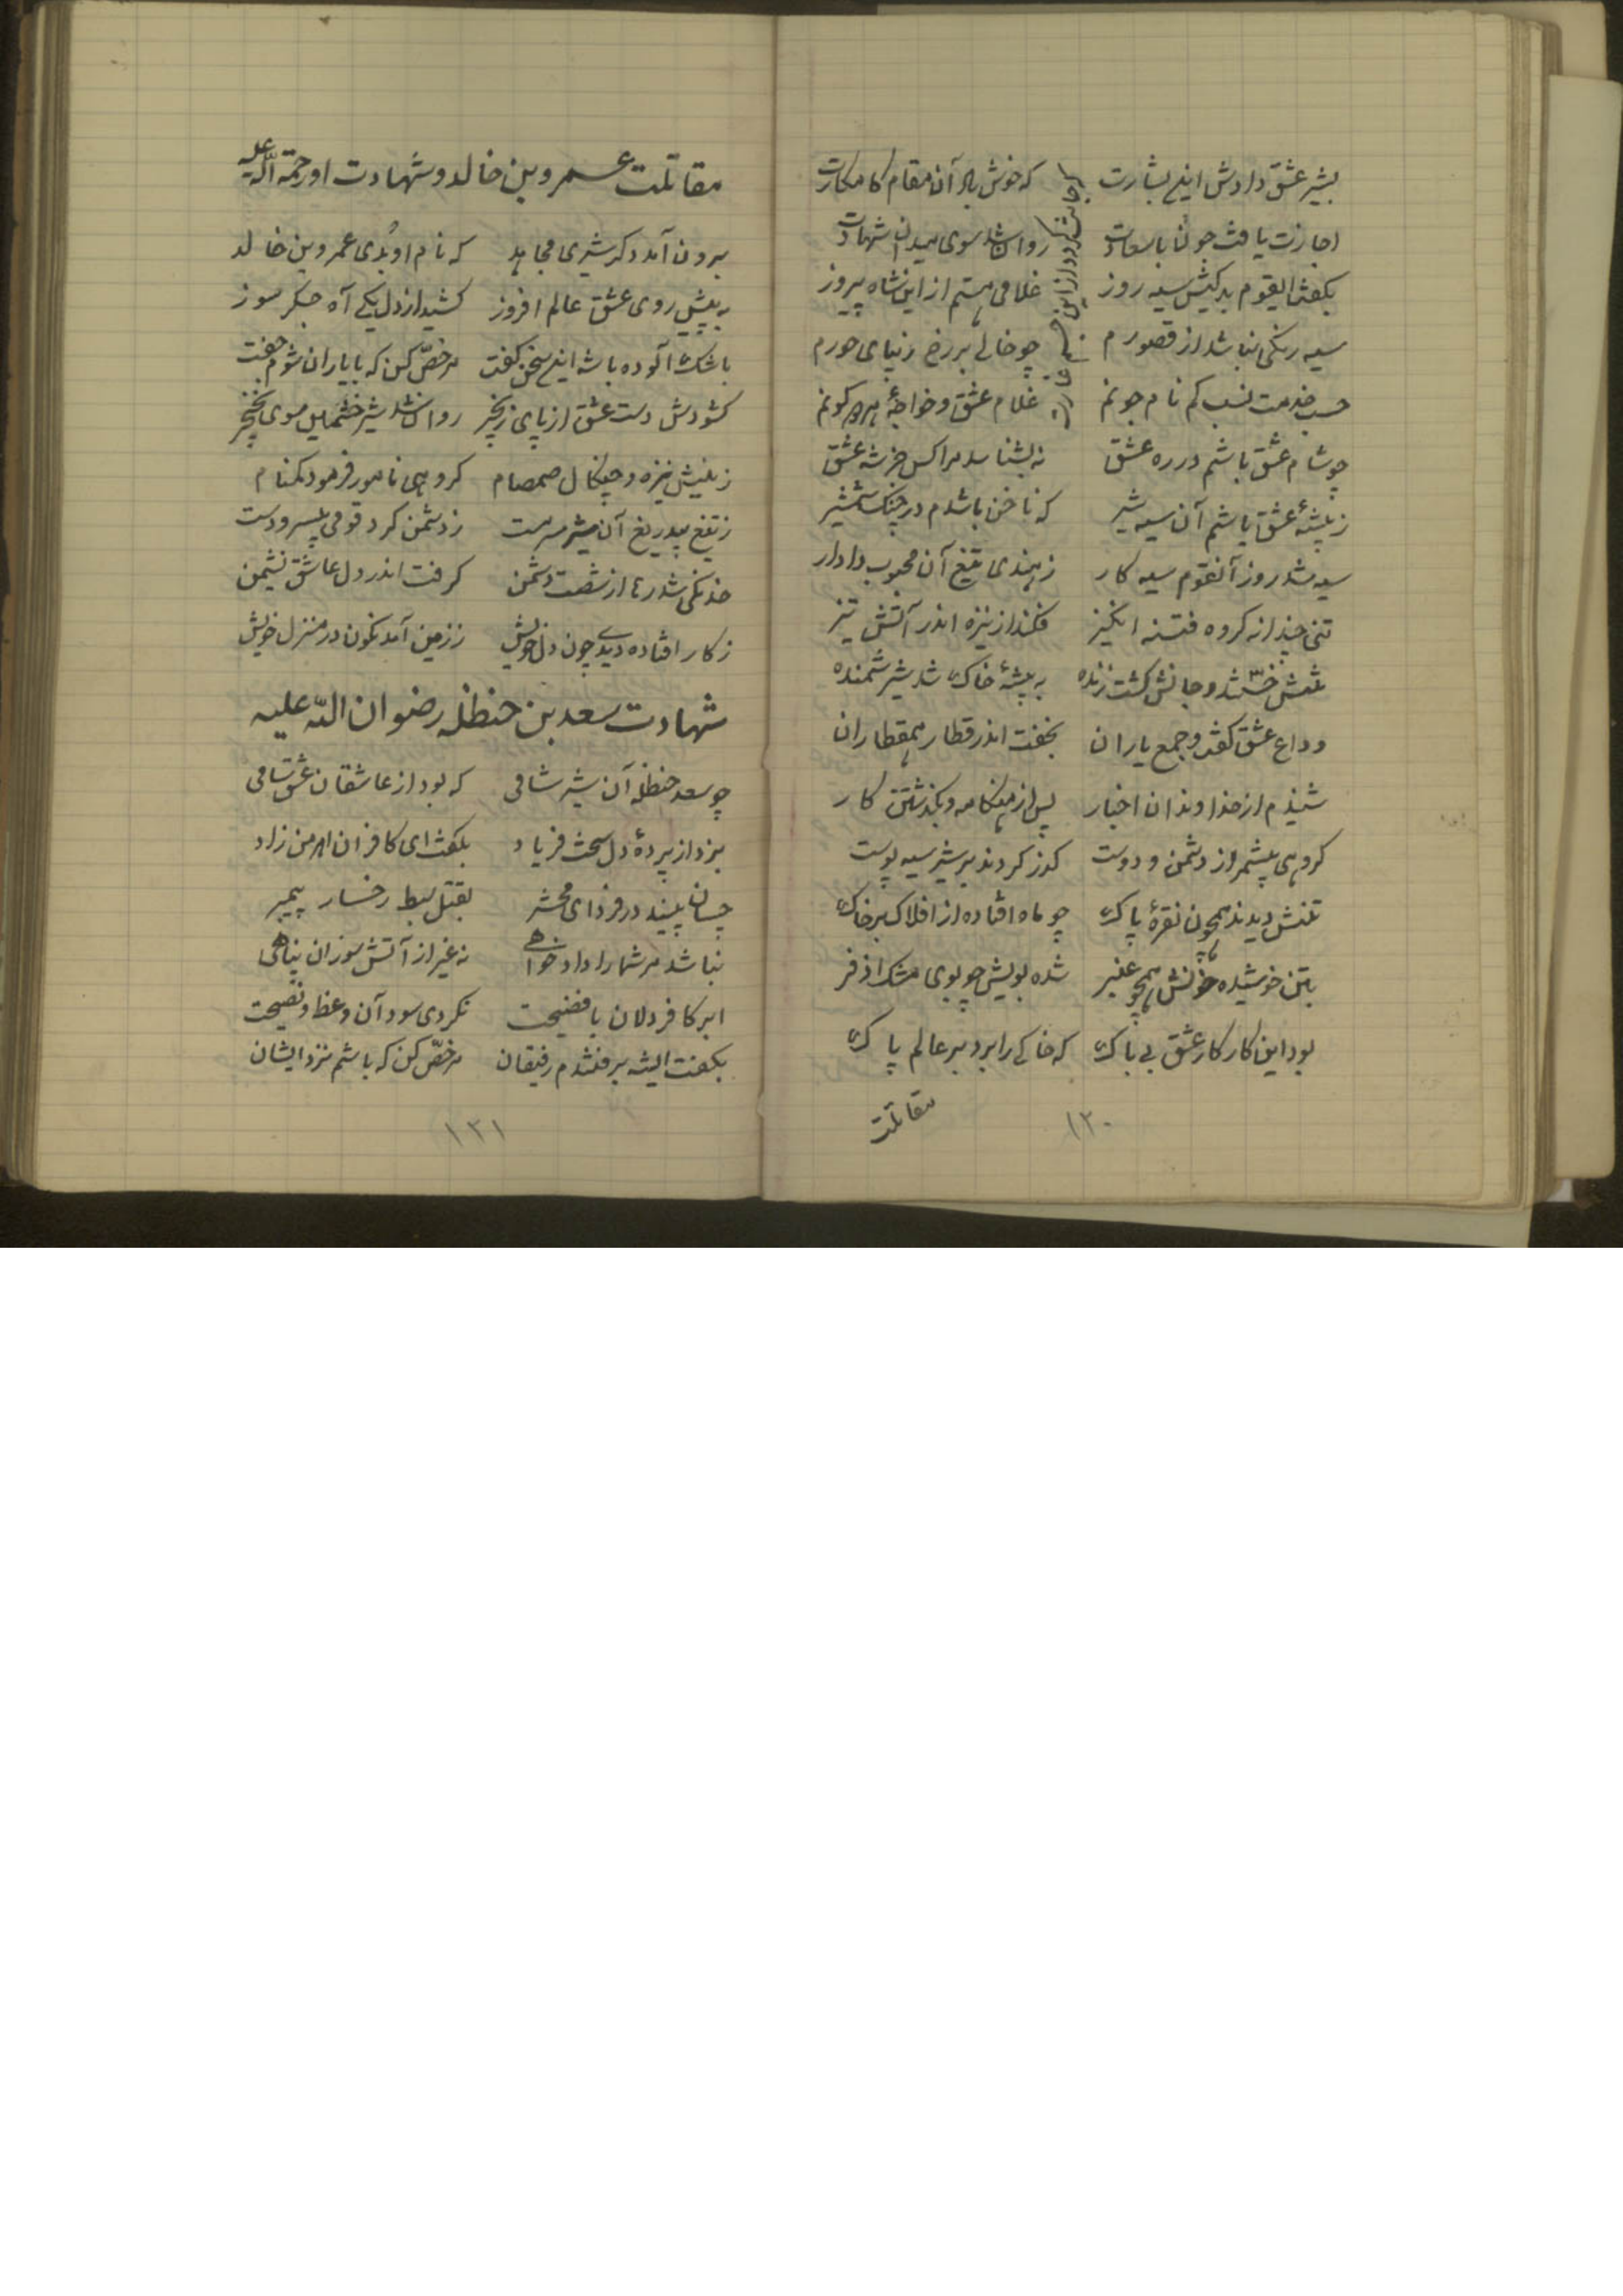 بشیر عشق دادش این بشارت که خوش باد آن مقام کامکارت
اجازت یافت جونا با سعادت روان شد سوی میدان شهادت
بگفت ایقوم بدکیش سیه روز غلامی هستم از این شاه پیروز
سیه رنگی نباشد از قصورم چو خالی بر رخ زیبای حورم
حسب خدمت نسب کم نام جونم غلام عشق و خواجهٔ هر دو کونم
چو شام عشق باشم در ره عشق نه بشناسد مرا کس جز شه عشق
ز بیشهٔ عشق باشم آن سیه شیر که ناخن باشدم در چنگ شمشیر
سیه شد روز آنقوم سیه کار ز هندی تیغ آن محبوب دادار
تنی چند از گروه فتنه انگیز فکند از نیزه اندر آتش تیز
تنش خسته شد و جانش گشت زنده به بیشهٔ خاک شد شیر شمنده
وداع عشق گفت و جمع یاران بخفت اندر قطار همقطاران
شنیدم از خداوندان اخبار پس از هنگامه و بگذشتن کار
گروهی بیشمر از دشمن و دوست گذر کردند بر شیر سیه پوست
تنش دیدند همچون نقرهٔ پاک چو ماه افتاده از افلاک بر خاک
بتن خوشیده خونش همچو عنبر شده بویش چو بوی مشک اذفر
بود این کار کار عشق بی باک که خاکی را برد بر عالم پاک
مقاتلت
۱۳۰
مقاتلت عمرو بن خالد و شهادت او رحمة الله علیه
برون آمد دگر شیری مجاهد که نام او بُدی عمرو بن خالد
به پیش روی عشق عالم افروز کشید از دل یکی آه جگر سوز
باشک آلوده با شه این سخن گفت مرخصّ کن که با یاران شوم جفت
گشودش دست عشق از پای زنجیر روان شد شیر خشمگین سوی نخجیر
ز نیش نیزه و چنگال صمصام گروهی نامور فرمود گمنام
ز تیغ بیدریغ آن شیر سرمست ز دشمن کرد قومی بیسر و دست
خدنگی شد رها از شصت دشمن گرفت اندر دل عاشق نشیمن
ز کار افتاده دیدی چون دل خویش ز زین آمد نگون در منزل خویش
شهادت سعد بن حنظله رضوان الله علیه
چو سعد حنظله آن شیر شامی که بود از عاشقان عشق سامی
بزد از پردهٔ دل سخت فریاد بگفت ای کافران اهرمن زاد
چسان بینید در فردای محشر بقتل سبط رخسار پیمبر
نباشد مر شما را داد خواهی نه غیر از آتش سوزان پناهی
ابر کافر دلان با فضیحت نکردی سود آن وعظ و نصیحت
بگفت ایشه برفتندم رفیقان مرخصّ کن که باشم نزد ایشان
۱۳۱